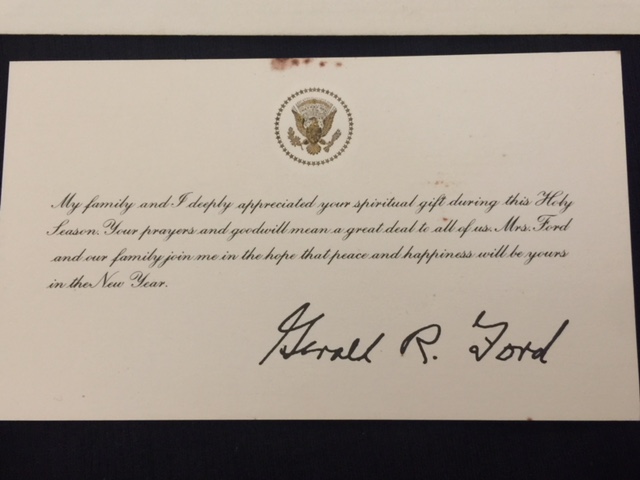 My family and I deeply appreciated your spiritual gift during this Holy
Season. Your prayers and goodwill mean a great deal to all of us. Mrs. Ford
and our family join me in the hope that peace and happiness will be yours
in the New Year.
Gerald R. Ford